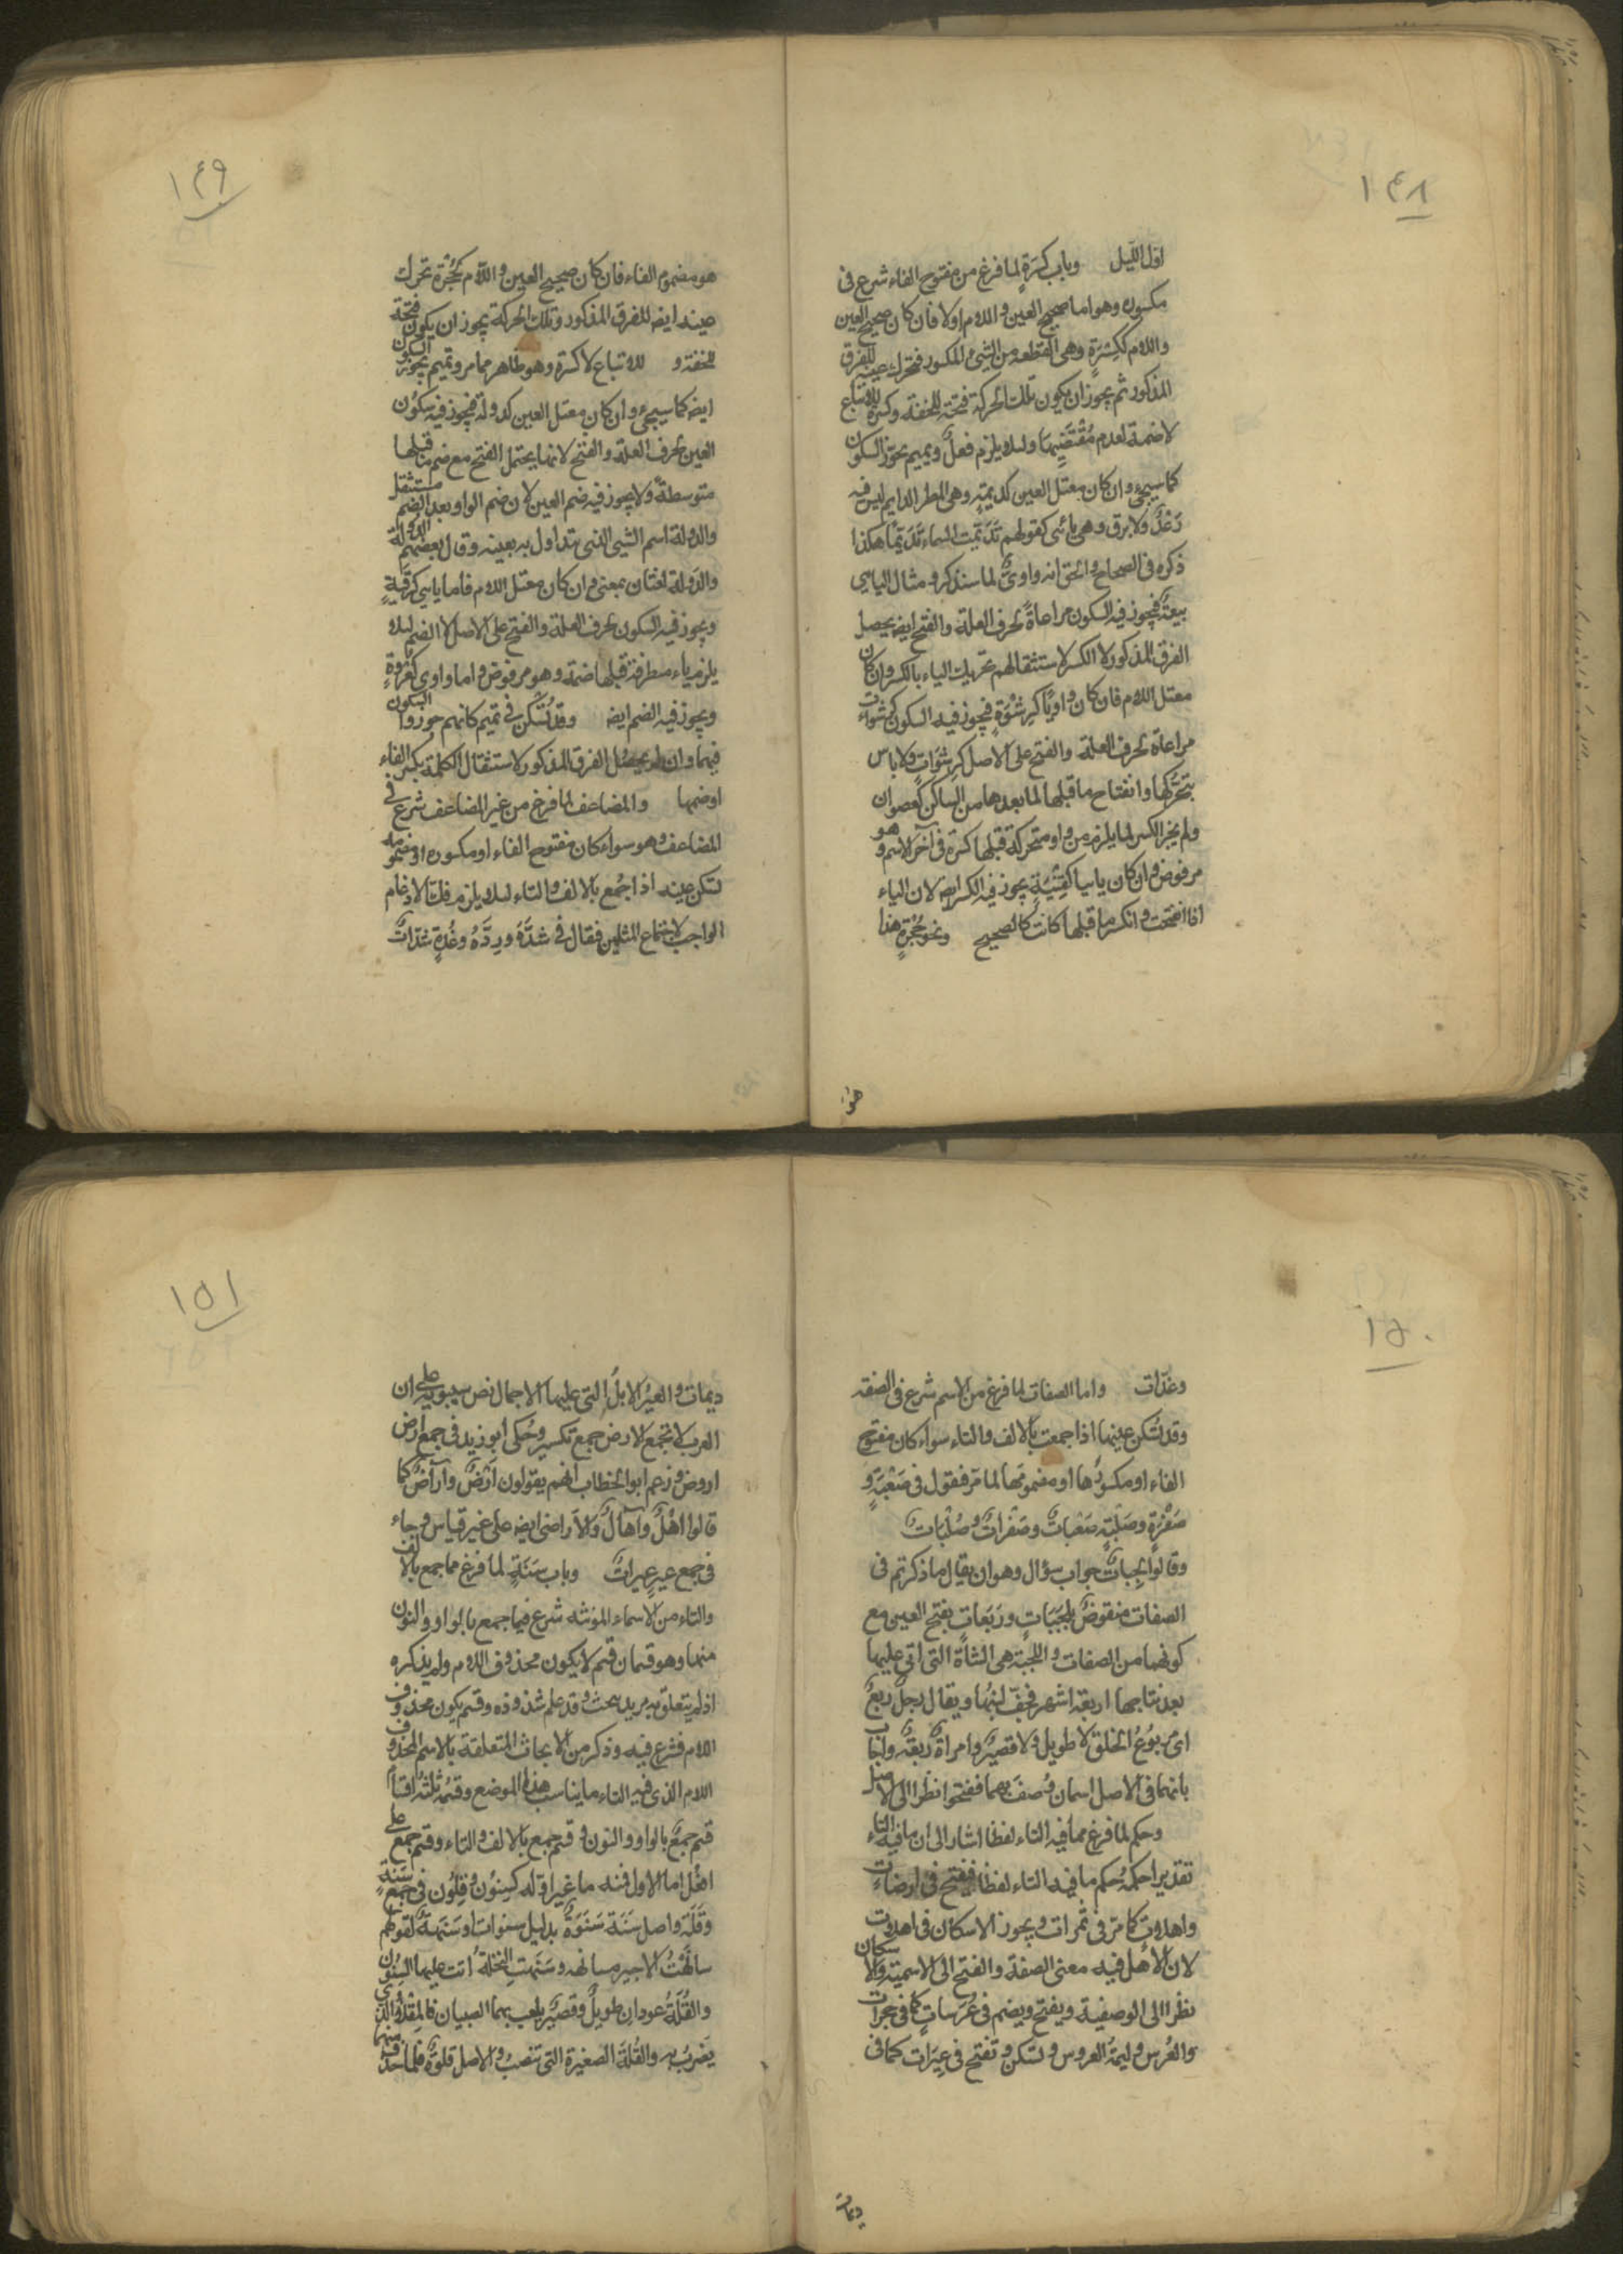 ١٤٨
اول الليل وباب كسرة لما فرغ من مفتوح الفاء شرع فى
مكسوره وهو اما صحيح العين واللام اولا فان كان صحيح العين
واللام ككسرة وهى القطعة من الشئ المكسور فتحرك عينه للفرق
المذكور ثم يجوز ان يكون تلك الحركة فتحة للخفة وكسرة للاتباع
لا ضمة لعدم مقتضيها ولئلا يلزم فعل وتميم يجوز السكون
كما سيجئ وان كان معتل العين كديمة وهى المطر الدايم ليس فيه
رعد ولا برق وهى يائى كقولهم تديمت السماء تديما هكذا
ذكره فى الصحاح والحق انه واوى لما سنذكر ومثال اليايى
بيعة فيجوز فيه السكون مراعاة لحرف العلة والفتح ايضه يحصل
الفرق المذكور لا الكسر لاستثقالهم تحريك الياء بالكسر وان كان
معتل اللام فان كان واويا كرشوة فيجوز فيه السكون كرشوات
مراعاة لحرف العلة والفتح على الاصل كرشوات ولا باس
بتحركها وانفتاح ما قبلها لما بعدها من الساكن كعصوان
ولم يجز الكسر لما يلزم من واو متحركة قبلها كسرة فى آخر الاسم وهو
مرفوض وان كان يايا كقنية يجوز فيه الكسر ايضه لان الياء
اذا انفتحت وانكسر ما قبلها كانت كالصحيح ونحو حجرة هذا
هو
١٤٩
هو مضموم الفاء فان كان صحيح العين واللام كحجرة تحرك
عينه ايضه للفرق المذكور وتلك الحركة يجوز ان يكون فتحة
للخفة و للاتباع لا كسرة وهو ظاهر مما مر وتميم يجوز السكون
ايضه كما سيجئ وان كان معتل العين كدولة فيجوز فيه سكون
العين لحرف العلة والفتح لانها يحتمل الفتح مع ضم ما قبلها
متوسطة ولا يجوز فيه ضم العين لان ضم الواو بعد الضم مستثقل
والدولة اسم الشيئ الذى يتداول به بعينه وقال بعضهم الدولة
والدولة لغتان بمعنى وان كان معتل اللام فاما يايى كرقية
ويجوز فيه السكون لحرف العلة والفتح على الاصل لا الضم لئلا
يلزم ياء متطرفة قبلها ضمة وهو مرفوض واما واوى كغروة
ويجوز فيه الضم ايضه وقد تسكن فى تميم كانهم جوزوا السكون
فيهما وان لم يحصل الفرق المذكور لاستثقال الكلمة بكسر الفاء
او ضمها والمضاعف لما فرغ من غير المضاعف شرع فى
المضاعف وهو سواء كان مفتوح الفاء او مكسوره او مضمومه
تسكن عينه اذا جمع بالالف والتاء لئلا يلزم فك الادغام
الواجب لاجتماع المثلين فقال فى شدة وردة وغدة شدات
١٥٠
وغدات واما الصفات لما فرغ من الاسم شرع فى الصفة
وقد تسكن عينها اذا جمعت بالالف والتاء سواء كان مفتوح
الفاء او مكسورها او مضمومها لما مر فتقول فى صعبة و
صفرة وصلبة صعبات وصفرات وصلبات
وقالوا لجبات جواب سؤال وهو ان يقال ما ذكرتم فى
الصفات منقوض بلجبات وربعات بفتح العين مع
كونهما من الصفات واللجبة هى الشاة التى اتى عليها
بعد نتاجها اربعة اشهر فجف لبنها ويقال رجل ربع
اى مربوع الخلق لا طويل ولا قصير وامراة ربعة واجاب
بانهما فى الاصل اسمان وصف بهما ففتحوا نظرا الى الاصل
وحكم لما فرغ مما فيه التاء لفظا اشار الى ان ما فيه التاء
تقديرا حكمه حكم ما فيه التاء لفظا فيفتح فى ارضات
واهلات كما مر فى تمرات ويجوز الاسكان فى اهلات
لان الاهل فيه معنى الصفة والفتح الى الاسمية والاسكان
نظرا الى الوصفية ويفتح ويضم فى عرسات كما فى حجرات
والعرس وليمة العروس وتسكن وتفتح فى عيرات كما فى
ديمات
١٥١
ديمات والعير الابل التى عليها الاحمال نص سيبويه على ان
العرب لا تجمع الارض جمع تكسير وحكى ابو زيد فى جمع ارض
اروض وزعم ابو الخطاب انهم يقولون ارض وآراض كما
قالوا اهل وآهال والاراضى ايضه على غير قياس وجاء
فى جمع عير عيرات وباب سنة لما فرغ مما جمع بالالف
والتاء من الاسماء المؤنثه شرع فيما جمع بالواو والنون
منها وهو قسمان قسم لا يكون محذوف اللام ولم يذكره
اذ لم يتعلق به مريد بحث وقد علم شذوذه وقسم يكون محذوف
اللام فشرع فيه وذكر من الابحاث المتعلقة بالاسم المحذوف
اللام الذى فيه التاء ما يناسب هذا الموضع وقسمه ثلثة اقساما
قسم جمع بالواو والنون وقسم جمع بالالف والتاء وقسم جمع على
افعل اما الاول فمنه ما غير اوله كسنون وقلون فى جمع سنة
وقلة واصل سنة سنوة بدليل سنوات او سنهة لقولهم
سانهت الاجير مسانهة وسنهت النخلة اتت عليها السنون
والقلة عودان طويل وقصير يلعب بهما الصبيان فالمقلاء الذى
يضرب به والقلة الصغيرة التى تنصب والاصل قلوة فلما حذف منهما